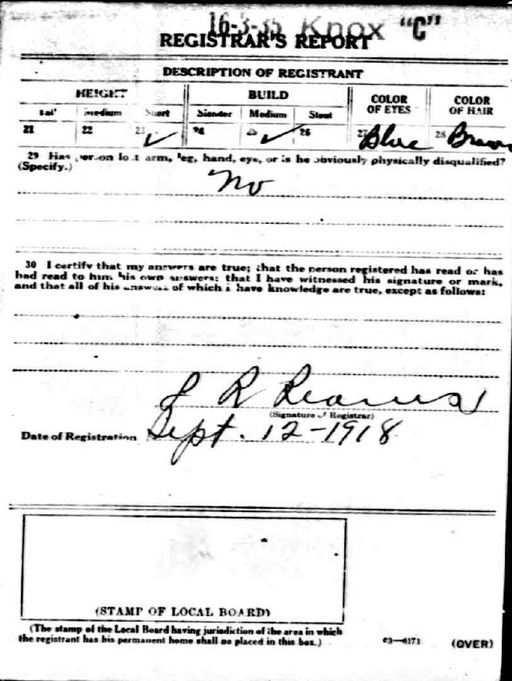 16-3-35 Knox "C"
REGISTRAR'S REPORT
DESCRIPTION OF REGISTRANT
HEIGHT BUILD COLOR OF EYES COLOR OF HAIR
Tall Medium Short Slender Medium Stout
21 22 23 ✓ 24 25 ✓ 26 27 Blue 28 Brown
29 Has person lost arm, leg, hand, eye, or is he obviously physically disqualified?
(Specify.)
No
30 I certify that my answers are true; that the person registered has read or has
had read to him his own answers; that I have witnessed his signature or mark,
and that all of his answers of which I have knowledge are true, except as follows:
R
(Signature of Registrar)
Date of Registration Sept. 12-1918
(STAMP OF LOCAL BOARD)
(The stamp of the Local Board having jurisdiction of the area in which
the registrant has his permanent home shall be placed in this box.)
03—6171 (OVER)